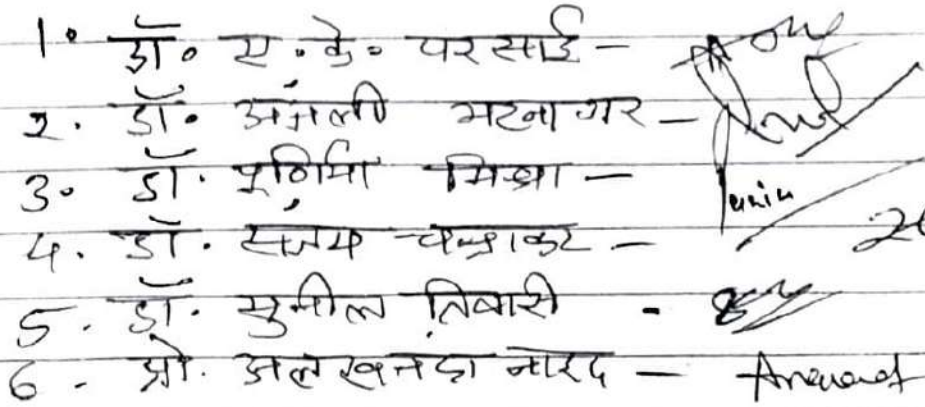 1. डॉ. ए. के. परसाई -
2. डॉ. अंजली भटनागर -
3. डॉ. पूर्णिमा मिश्रा -
4. डॉ. संजय चन्द्राकर -
5. डॉ. सुनील तिवारी -
6. प्रो. अलखनंदा नारद -